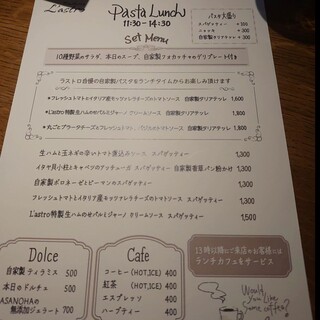 L'astro
Pasta Lunch
11:30-14:30
Set Menu
パスタ大盛り
スパゲッティー +300
ニョッキ +300
自家製タリアテッレ +300
10種野菜のサラダ、本日のスープ、自家製フォカッチャのデリプレート付き
ラストロ自慢の自家製パスタをランチタイムからお楽しみ頂けます
★フレッシュトマトとイタリア産モッツァレラチーズのトマトソース 自家製タリアテッレ 1,600
★L'astro特製生ハムのせパルミジャーノ クリームソース 自家製タリアテッレ 1,800
自家製タリアテッレ 1,800
生ハムと玉ネギの辛いトマト煮込みソース スパゲッティー 1,300
イタヤ貝小柱とキャベツのアッチューガ スパゲッティー 自家製香草パン粉かけ 1,300
自家製ボロネーゼとピーマンのスパゲッティー 1,300
フレッシュトマトとイタリア産モッツァレラチーズのトマトソース スパゲッティー 1,300
L'astro特製生ハムのせパルミジャーノ クリームソース スパゲッティー 1,500
Dolce
自家製ティラミス 500
本日のドルチェ 500
ASANOHAの
無添加ジェラート 700
Cafe
コーヒー(HOT,ICE) 400
紅茶 (HOT,ICE) 400
エスプレッソ 400
ハーブティー 400
13時以降にご来店のお客様には
ランチカフェをサービス
Would
you like
some coffee?